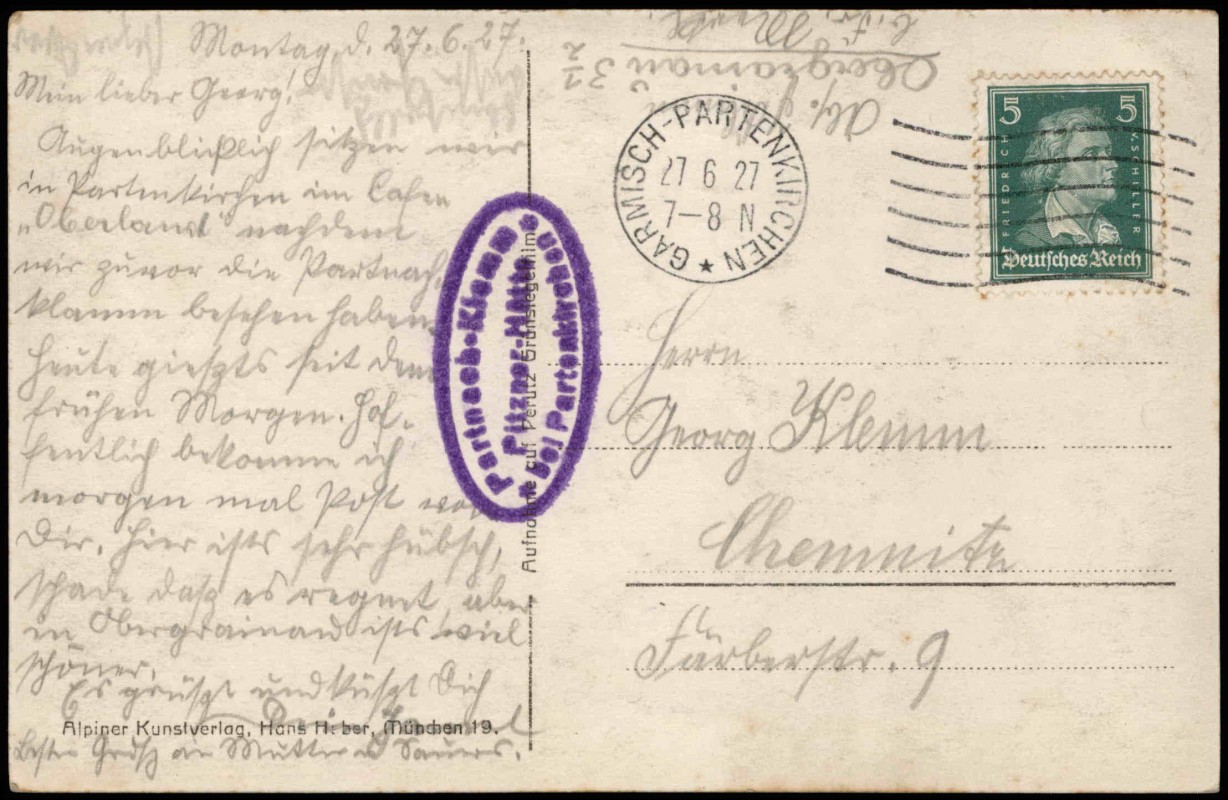 Montag, d. 27.6.27.
Mein lieber Georg!
Augenblicklich sitzen wir
in Partenkirchen im Cafee
„Oberland" nachdem
wir zuvor die Partnach-
klamm besehen haben.
Heute gieszts seit dem
frühen Morgen. Hof-
fentlich bekomme ich
morgen mal Post von
Dir. Hier ists sehr hübsch,
schade dasz es regnet, aber
in Obergrainau ists viel
schöner.
Es grüszt und küszt Dich
Dein
beste Grüsz an Mutter u Sauers.
Alpiner Kunstverlag, Hans Huber, München 19.
Aufnahme auf Perutz Grünsiegelfilm
Partnach-Klamm
Pitzner-Hütte
bei Partenkirchen
Abs.
Obergrainau 3 1/2
GARMISCH-PARTENKIRCHEN
27 6 27
7-8 N
5 5
FRIEDRICH V. SCHILLER
Deutsches Reich
Herrn
Georg Klemm
Chemnitz
Färberstr. 9